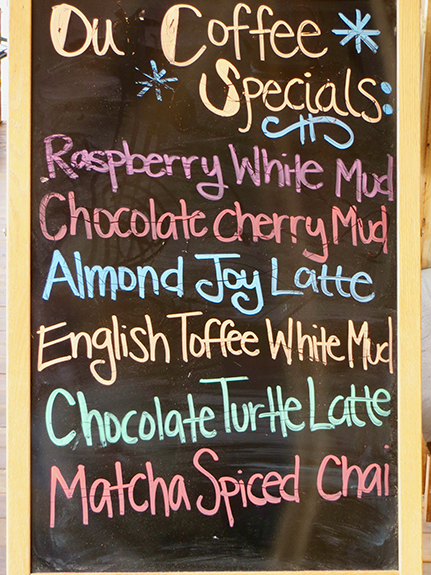 Du Coffee
Specials:
Raspberry White Mud
Chocolate Cherry Mud
Almond Joy Latte
English Toffee White Mud
Chocolate Turtle Latte
Matcha Spiced Chai